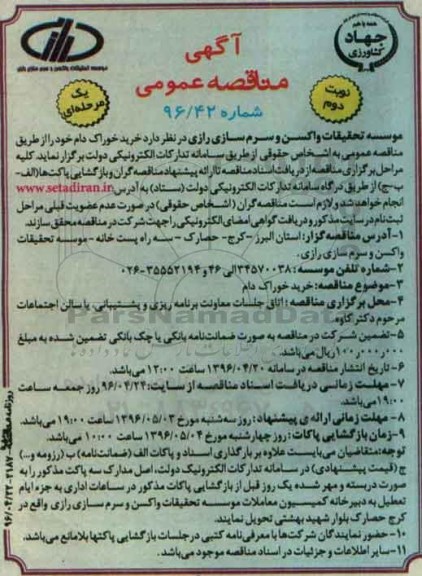 همه با هم
جهاد
کشاورزی
رازی
موسسه تحقیقات واکسن و سرم سازی رازی
آگهی
مناقصه عمومی
شماره ۹۶/۴۲
نوبت
دوم
یک
مرحله‌ای
موسسه تحقیقات واکسن و سرم سازی رازی در نظر دارد خرید خوراک دام خود را از طریق
مناقصه عمومی به اشخاص حقوقی از طریق سامانه تدارکات الکترونیکی دولت برگزار نماید. کلیه
مراحل برگزاری مناقصه از دریافت اسناد مناقصه تا ارائه پیشنهاد مناقصه گران و بازگشایی پاکت ها (الف-
ب-ج) از طریق درگاه سامانه تدارکات الکترونیکی دولت (ستاد) به آدرس www.setadiran.ir
انجام خواهد شد و لازم است مناقصه گران (اشخاص حقوقی) در صورت عدم عضویت قبلی مراحل
ثبت نام در سایت مذکور و دریافت گواهی امضای الکترونیکی را جهت شرکت در مناقصه محقق سازند.
۱-آدرس مناقصه گزار: استان البرز -کرج- حصارک - سه راه پست خانه - موسسه تحقیقات
واکسن و سرم سازی رازی.
۲-شماره تلفن موسسه: ۳۴۵۷۰۰۳۸ الی ۴۶ و ۳۵۵۵۲۱۹۴-۰۲۶
۳-موضوع مناقصه: خرید خوراک دام
۴-محل برگزاری مناقصه: اتاق جلسات معاونت برنامه ریزی و پشتیبانی، یا سالن اجتماعات
مرحوم دکتر کاوه.
۵-تضمین شرکت در مناقصه به صورت ضمانت نامه بانکی یا چک بانکی تضمین شده به مبلغ
ریال می‌باشد.
۶- تاریخ انتشار مناقصه در سامانه ۱۳۹۶/۰۴/۲۰ ساعت ۱۲:۰۰ می‌باشد.
۷- مهلت زمانی دریافت اسناد مناقصه از سایت: ۹۶/۰۴/۲۴ روز جمعه ساعت
۱۹:۰۰ می‌باشد.
۸- مهلت زمانی ارائه ی پیشنهاد: روز سه شنبه مورخ ۱۳۹۶/۰۵/۰۳ ساعت ۱۹:۰۰ می‌باشد.
۹-زمان بازگشایی پاکات: روز چهارشنبه مورخ ۱۳۹۶/۰۵/۰۴ ساعت ۱۰:۰۰ می‌باشد.
توجه: متقاضیان می‌بایست علاوه بر بارگذاری اسناد و پاکات الف (ضمانت نامه) ب (رزومه و...)
ج (قیمت پیشنهادی) در سامانه تدارکات الکترونیک دولت، اصل مدارک سه پاکت مذکور را به
صورت دربسته و مهر شده یک روز قبل از بازگشایی پاکات مذکور در ساعات اداری به جزء ایام
تعطیل به دبیرخانه کمیسیون معاملات موسسه تحقیقات واکسن و سرم سازی رازی واقع در
کرج حصارک بلوار شهید بهشتی تحویل نمایند.
۱۰-حضور نمایندگان شرکت ها با معرفی نامه کتبی در جلسات بازگشایی پاکتها بلامانع می‌باشد.
۱۱-سایر اطلاعات و جزئیات در اسناد مناقصه موجود می‌باشد.
ParsNamadData